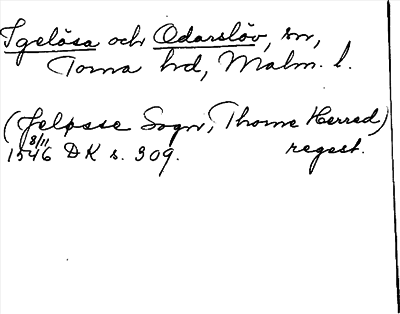 Igelösa och Odarslöv, sn,
Torna hd, Malm. l.
(Jeløsse Sogn, Thorne Herred)
8/11
1546 DK s. 309. regest.